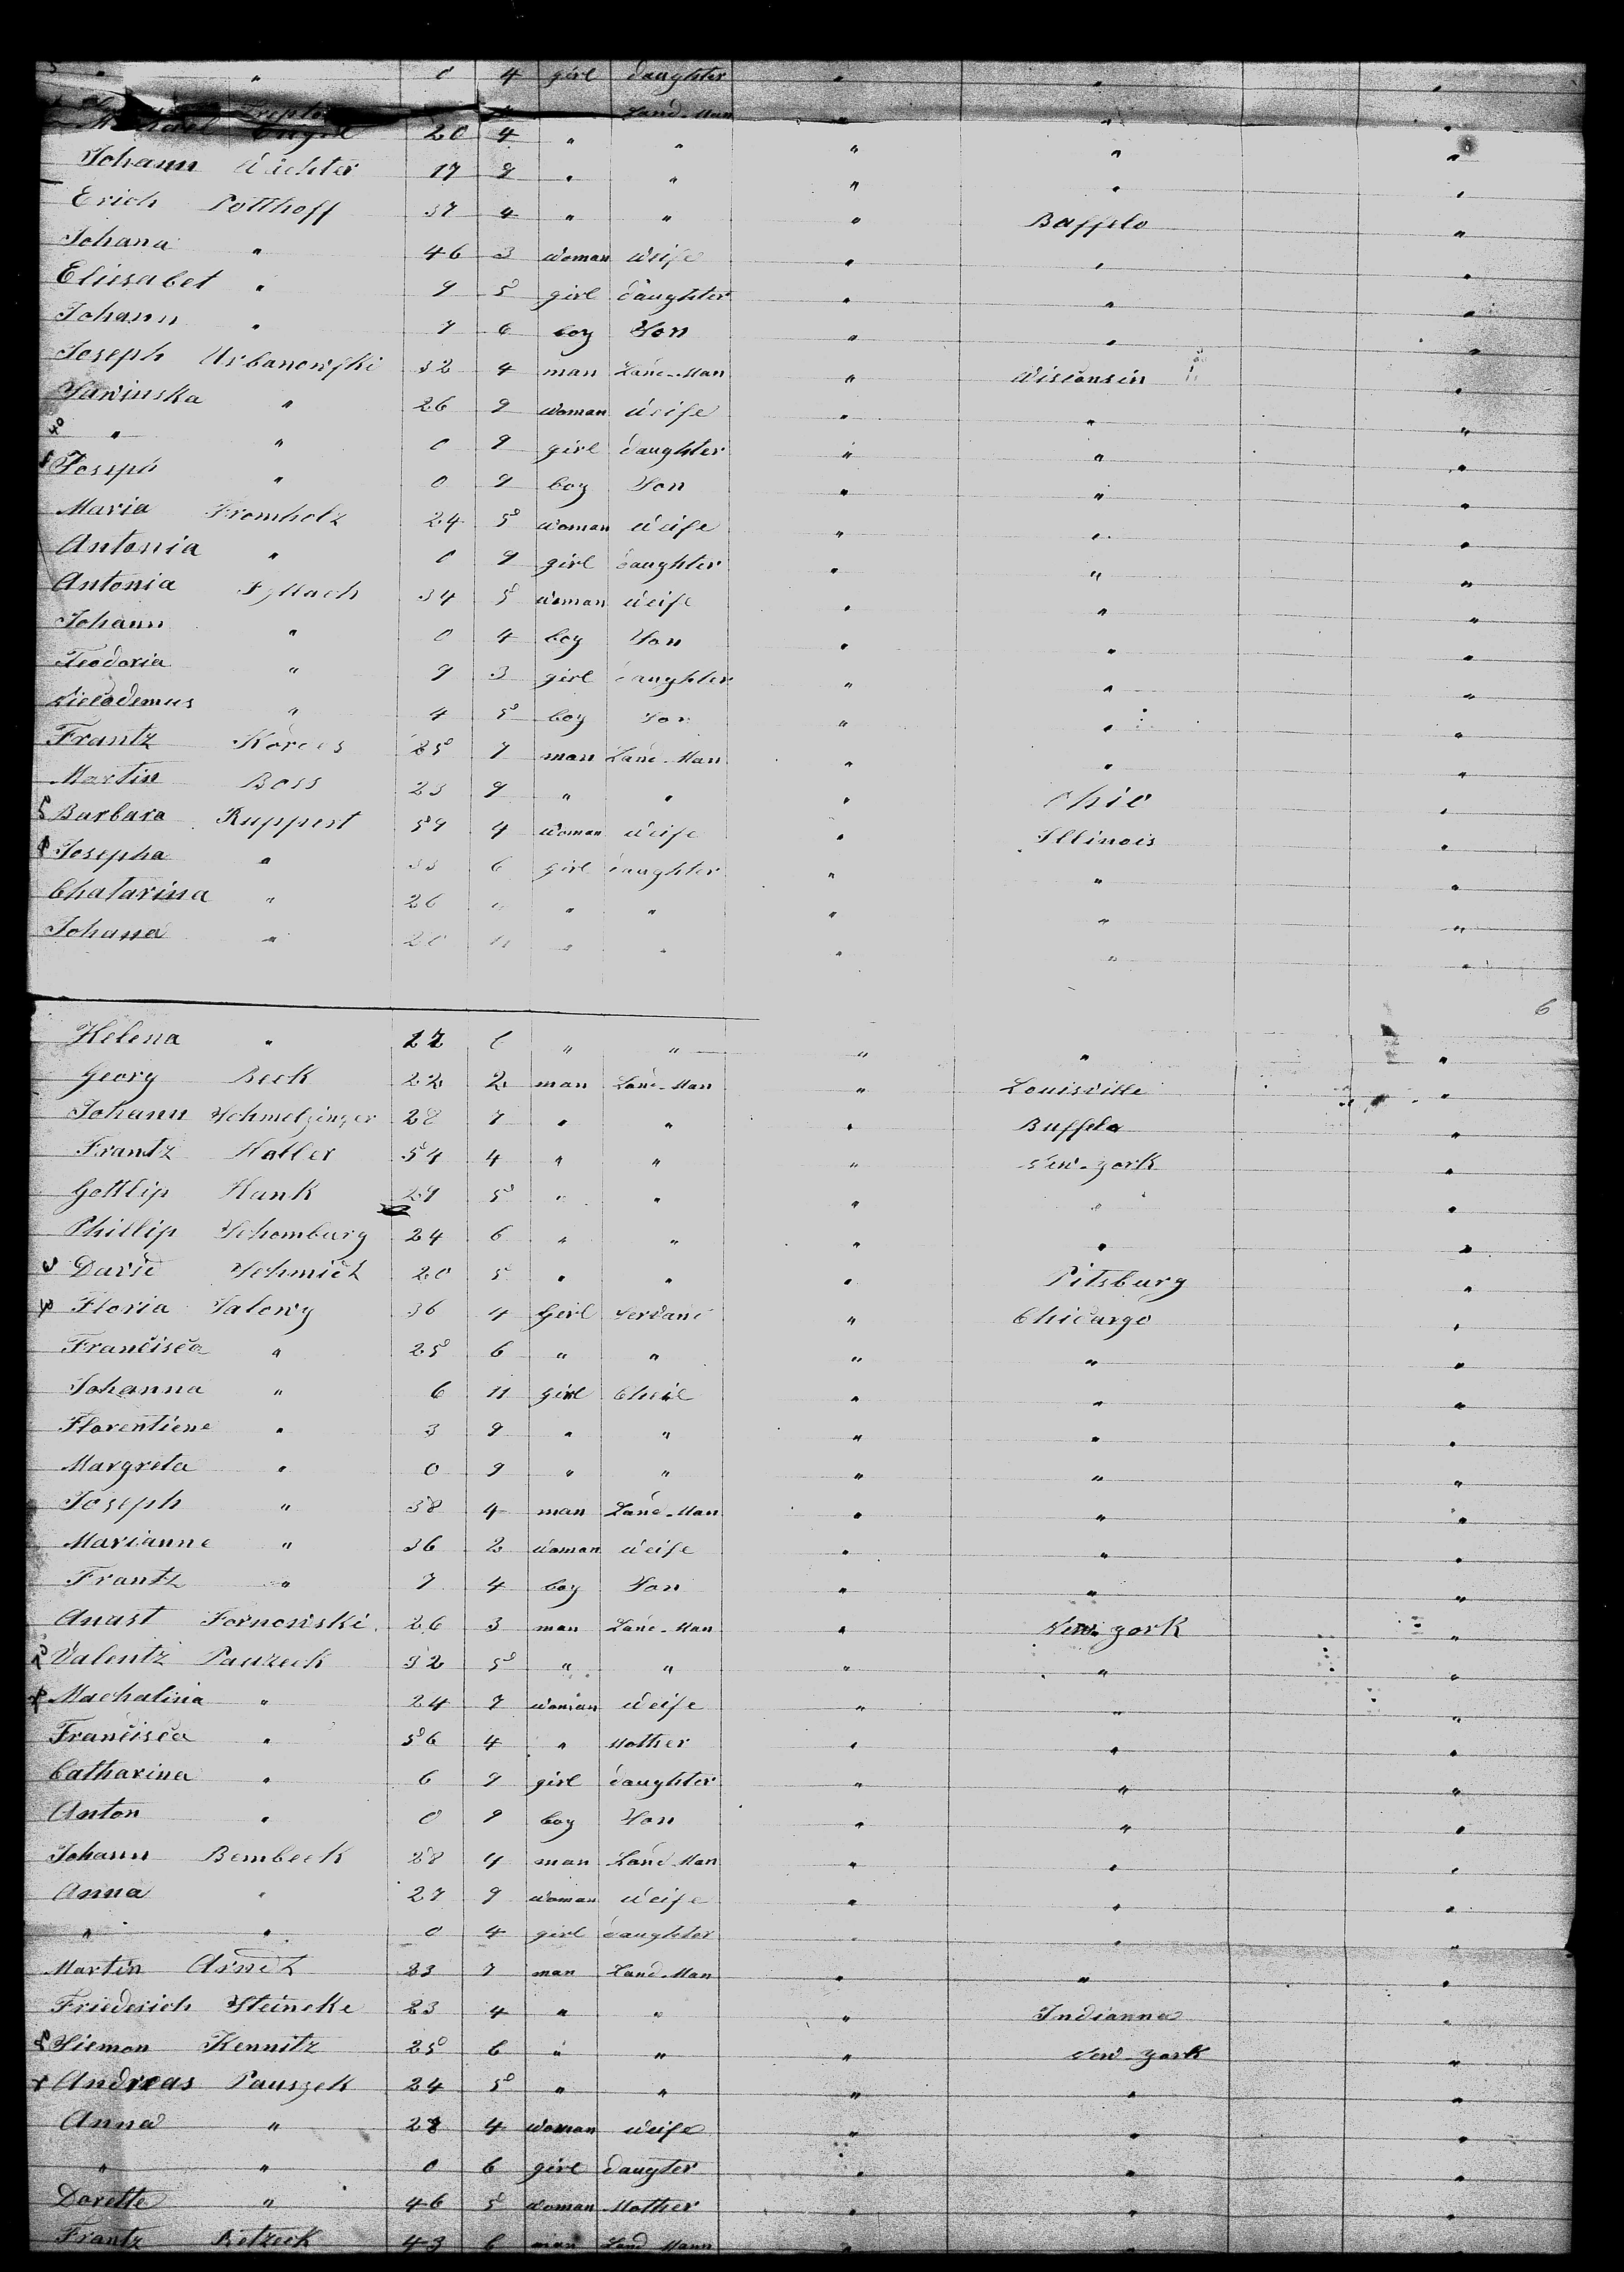 " " 0 4 girl daughter " " "
Land-Man " " "
Engel 20 4 " " " " "
Johann Richter 17 9 " " " " "
Erich Potthoff 37 4 " " " Buffelo "
Johana " 46 3 woman Weife " " "
Eliesabet " 9 5 girl daughter " " "
Johann " 7 6 boy Son " " "
Joseph Urbanowski 32 4 man Land-Man " Wisconsin "
Sawinska " 26 9 woman Weife " " "
" " 0 9 girl daughter " " "
Joseph " 0 9 boy Son " " "
Maria Fromholz 24 5 woman Weife " " "
Antonia " 0 9 girl daughter " " "
Antonia 34 5 woman Weife " " "
Johann " 0 4 boy Son " " "
Teodoria " 9 3 girl daughter " " "
Nicodemus " 4 5 boy Son " " "
Frantz 25 7 man Land-Man " " "
Martin Boss 23 9 " " " Ohio "
Barbara Ruppert 59 4 woman Weife " Illinois "
Josepha " 33 6 girl daughter " " "
Chatarina " 26 " " " " "
Johana " 20 11 " " " " "
6
Helena " 17 6 " " " " "
Georg Beck 22 2 man Land-Man " Louisville "
Johann Schmelzinger 28 7 " " " Buffelo "
Frantz Haller 54 4 " " " New-york "
Gottlip Hank 29 5 " " " " "
Phillip Schomburg 24 6 " " " " "
David Schmidt 20 5 " " " Pitsburg "
Floria Salowy 36 4 Girl Servant " Chicargo "
Francisca " 25 6 " " " " "
Johanna " 6 11 girl Cheild " " "
Florentiene " 3 9 " " " " "
Margreta " 0 9 " " " " "
Joseph " 38 4 man Land-Man " " "
Marianne " 36 2 woman Weife " " "
Frantz " 7 4 boy Son " " "
Anast Fornowski 26 3 man Land-Man " New-york "
Valentz Pauzeck 32 5 " " " " "
Machalina " 24 7 woman Weife " " "
Francisca " 56 4 " Mother " " "
Catharina " 6 9 girl daughter " " "
Anton " 0 9 boy Son " " "
Johann Bembeck 28 4 man Land-Man " " "
Anna " 27 9 woman Weife " " "
" " 0 4 girl daughter " " "
Martin Arndt 23 7 man Land-Man " " "
Friederich Steincke 23 4 " " " Indianna "
Siemon Kennitz 25 6 " " " New-york "
Andreas Pauszek 24 5 " " " " "
Anna " 28 4 woman Weife " " "
" " 0 6 girl daugter " " "
Dorette " 46 5 woman Mother " " "
Frantz Betzeck 43 6 man Land Mann " " "